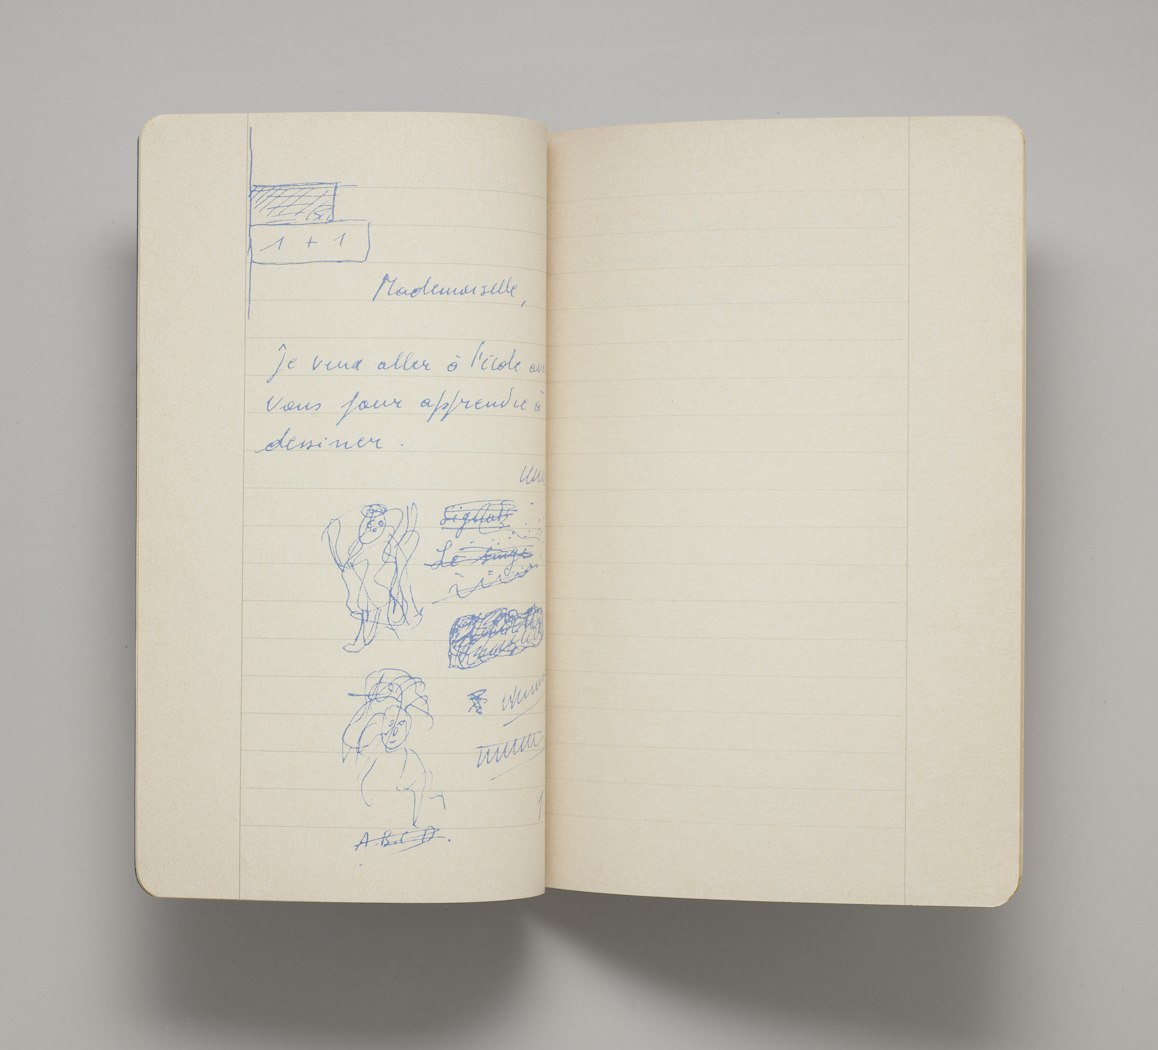 1 + 1
Mademoiselle,
Je veux aller à l'école
vous pour apprendre à
dessiner.
Signature
Le singe
A B C D.